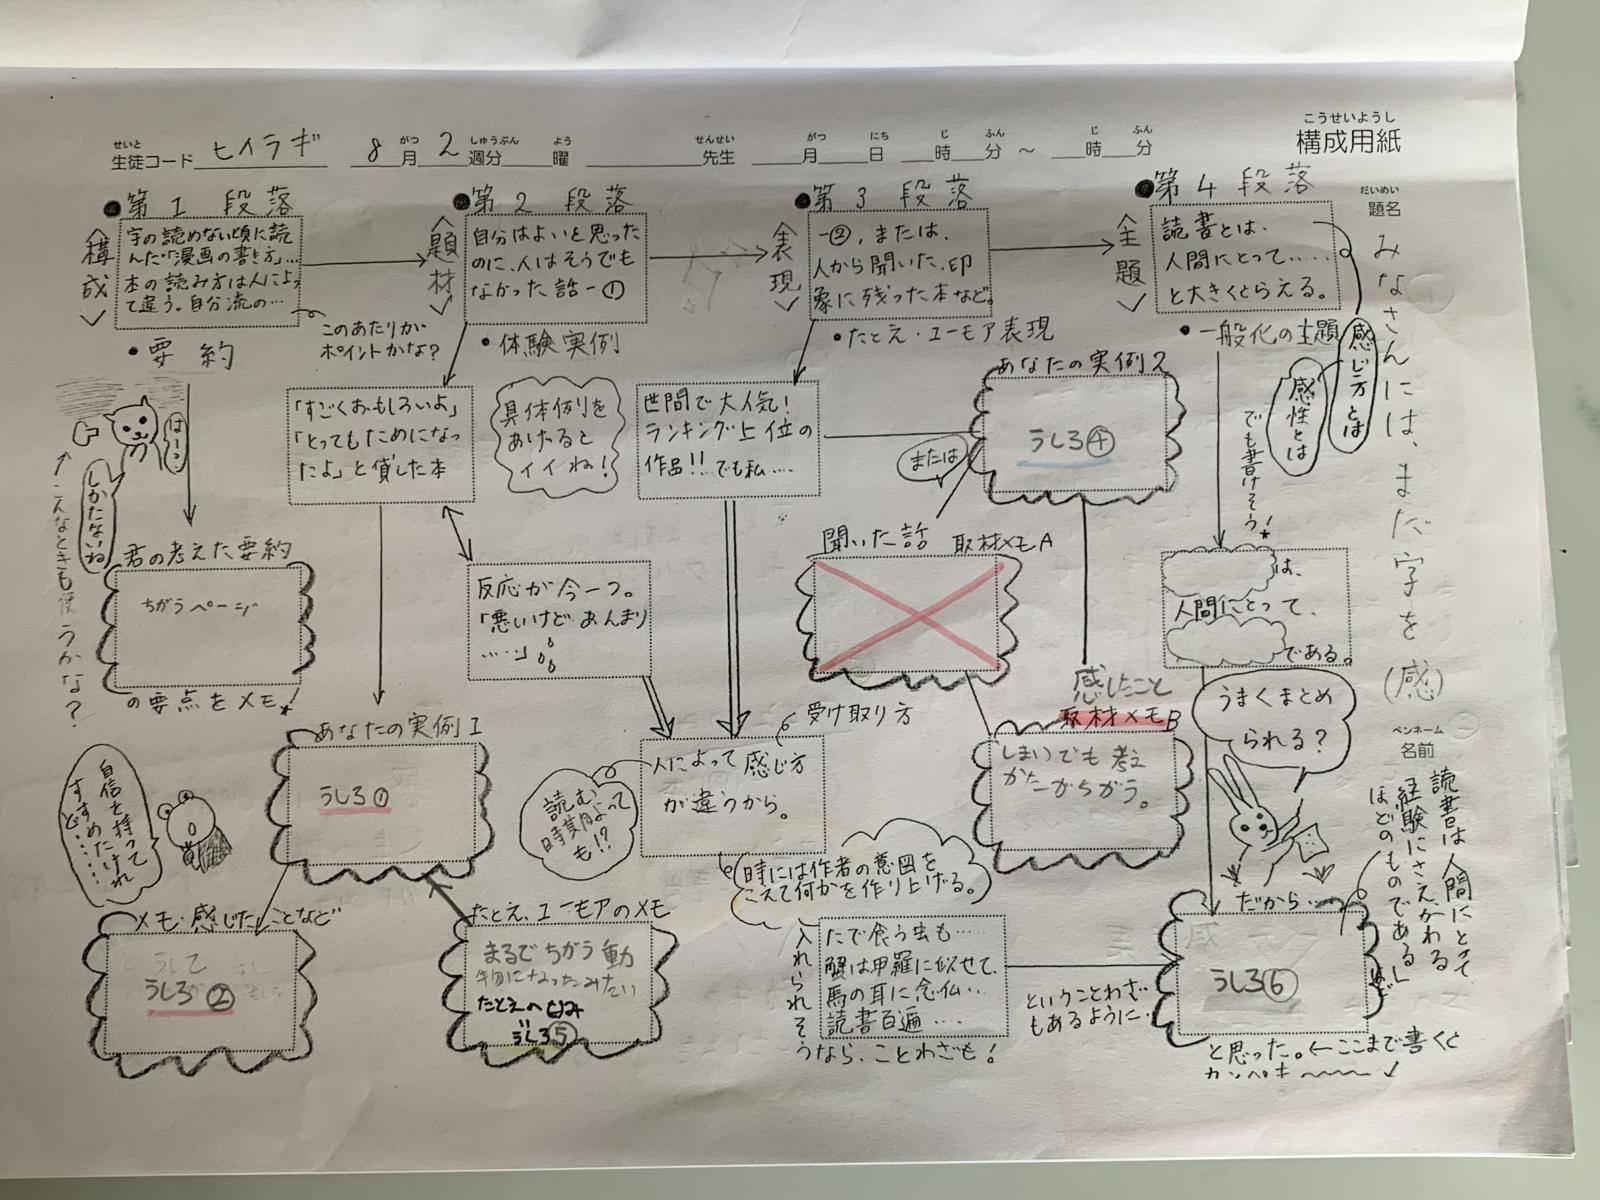 こうせいようし
構成用紙
せいと
生徒コード ヒイラギ
8 がつ 月 2 しゅうぶん 週分 よう 曜
せんせい 先生
がつ 月 にち 日 じ 時 ふん 分 ～ じ 時 ふん 分
だいめい
題名
みなさんには、まだ字を(感)
ペンネーム
名前
読書は人間にとって、
経験にさえかわる
ほどのものである
●第1段落
〈構成〉
字の読めない頃に読
んだ「漫画の書き方」…
本の読み方は人によっ
て違う。自分流の…
このあたりが
ポイントかな?
・要約
はーい
しかたないね
こんなときも使うかな?
君の考えた要約
ちがうページ
の要点をメモ
●第2段落
〈題材〉
自分はよいと思った
のに、人はそうでも
なかった話ー①
・体験実例
「すごくおもしろいよ」
「とってもためになっ
たよ」と貸した本
具体例を
あげると
イイね!
反応が今一つ。
「悪いけど、あんまり
……」
あなたの実例1
うしろ①
自信を持って
すすめたけれ
ど……
メモ 感じたことなど
うしろ②
たとえ、ユーモアのメモ
まるでちがう動
物になったみたい
たとえへ
うしろ⑤
●第3段落
〈表現〉
ー②、または、
人から聞いた、印
象に残った本など。
・たとえ・ユーモア表現
世間で大人気!
ランキング上位の
作品!!でも私….
または
あなたの実例2
うしろ④
聞いた話 取材メモA
感じたこと
取材メモB
しまいでも考え
かたーがちがう。
受け取り方
人によって感じ方
が違うから。
読む
時期によって
も!?
時には作者の意図を
こえて何かを作り上げる。
たで食う虫も……
蟹は甲羅に似せて、
馬の耳に念仏…
読書百遍….
入れられそ
うなら、ことわざも!
ということわざ
もあるように…
●第4段落
〈主題〉
読書とは、
人間にとって……
と大きくとらえる。
・一般化の主題
感じ方とは
感性とは
でも書けそう!
は、
人間にとって、
である。
うまくまとめ
られる?
だから…
うしろ⑥
と思った。←ここまで書くと
カンペキ